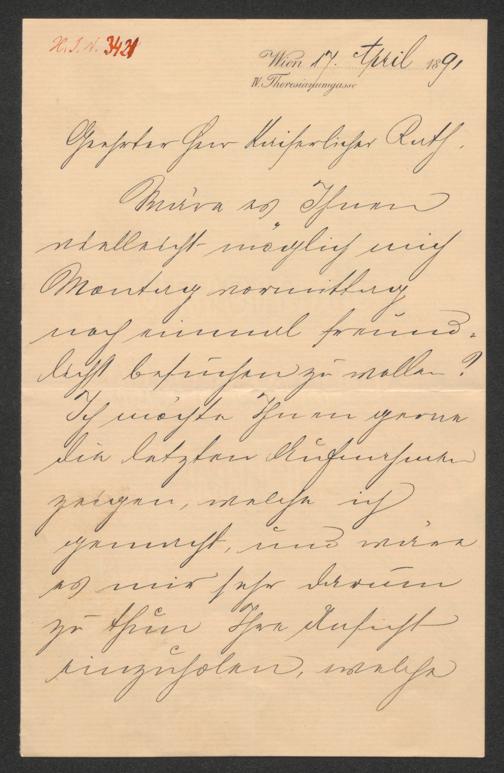 H. I. N. 3421
Wien 17. April 1891
IV. Theresianumgasse
Geehrter Herr Kaiserlicher Rath.
Wäre es Ihnen
vielleicht möglich mich
Montag vormittag
noch einmal freund-
lichst besuchen zu wollen?
Ich möchte Ihnen gerne
die letzten Aufnahmen
zeigen, welche ich
gemacht, und wäre
es mir sehr darum
zu thun Ihre Ansicht
einzuholen, welche